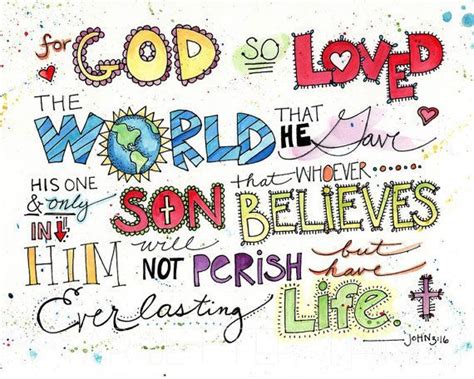 for GOD so LOVED
THE WORLD THAT HE Gave
HIS ONE & only SON that WHOEVER
IN HIM BELIEVES
will NOT PERISH but have
Everlasting LIFE.
JOHN 3:16